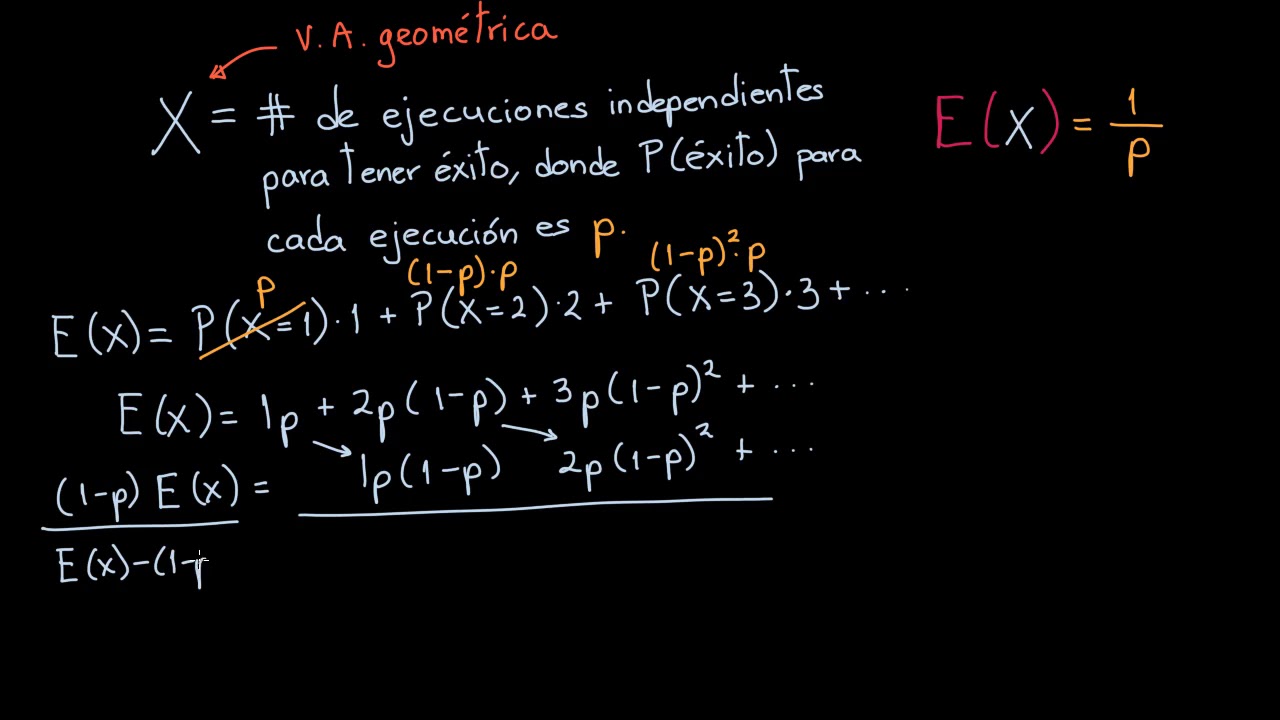 V.A. geométrica
X = # de ejecuciones independientes
para tener éxito, donde P(éxito) para
cada ejecución es p.
E(X) = 1/p
p (1-p)·p (1-p)²·p
E(X) = P(X=1)·1 + P(X=2)·2 + P(X=3)·3 + ...
E(X) = 1p + 2p(1-p) + 3p(1-p)² + ...
(1-p) E(X) = 1p(1-p) 2p(1-p)² + ...
E(X)-(1-p